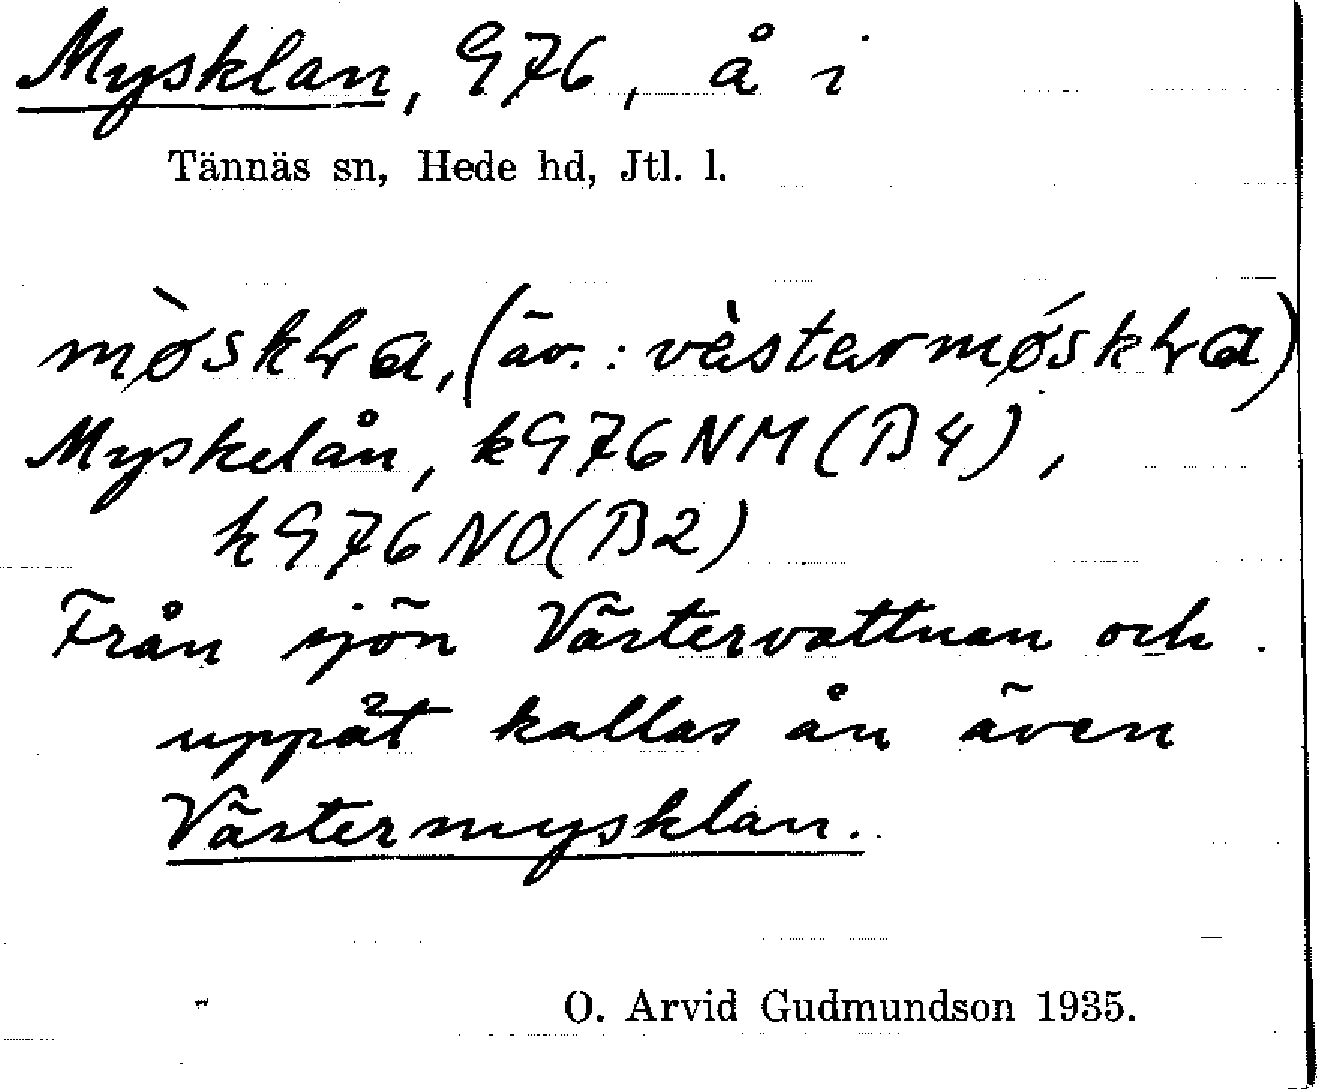 Mysklan, G76, å i
Tännäs sn, Hede hd, Jtl. l.
mø̀skɫɑ, (äv.: vèstermǿskɫɑ)
Myskelån, kG76NM(B4),
kG76NO(B2)
Från sjön Västervattnan och
uppåt kallas ån även
Västermysklan.
O. Arvid Gudmundson 1935.